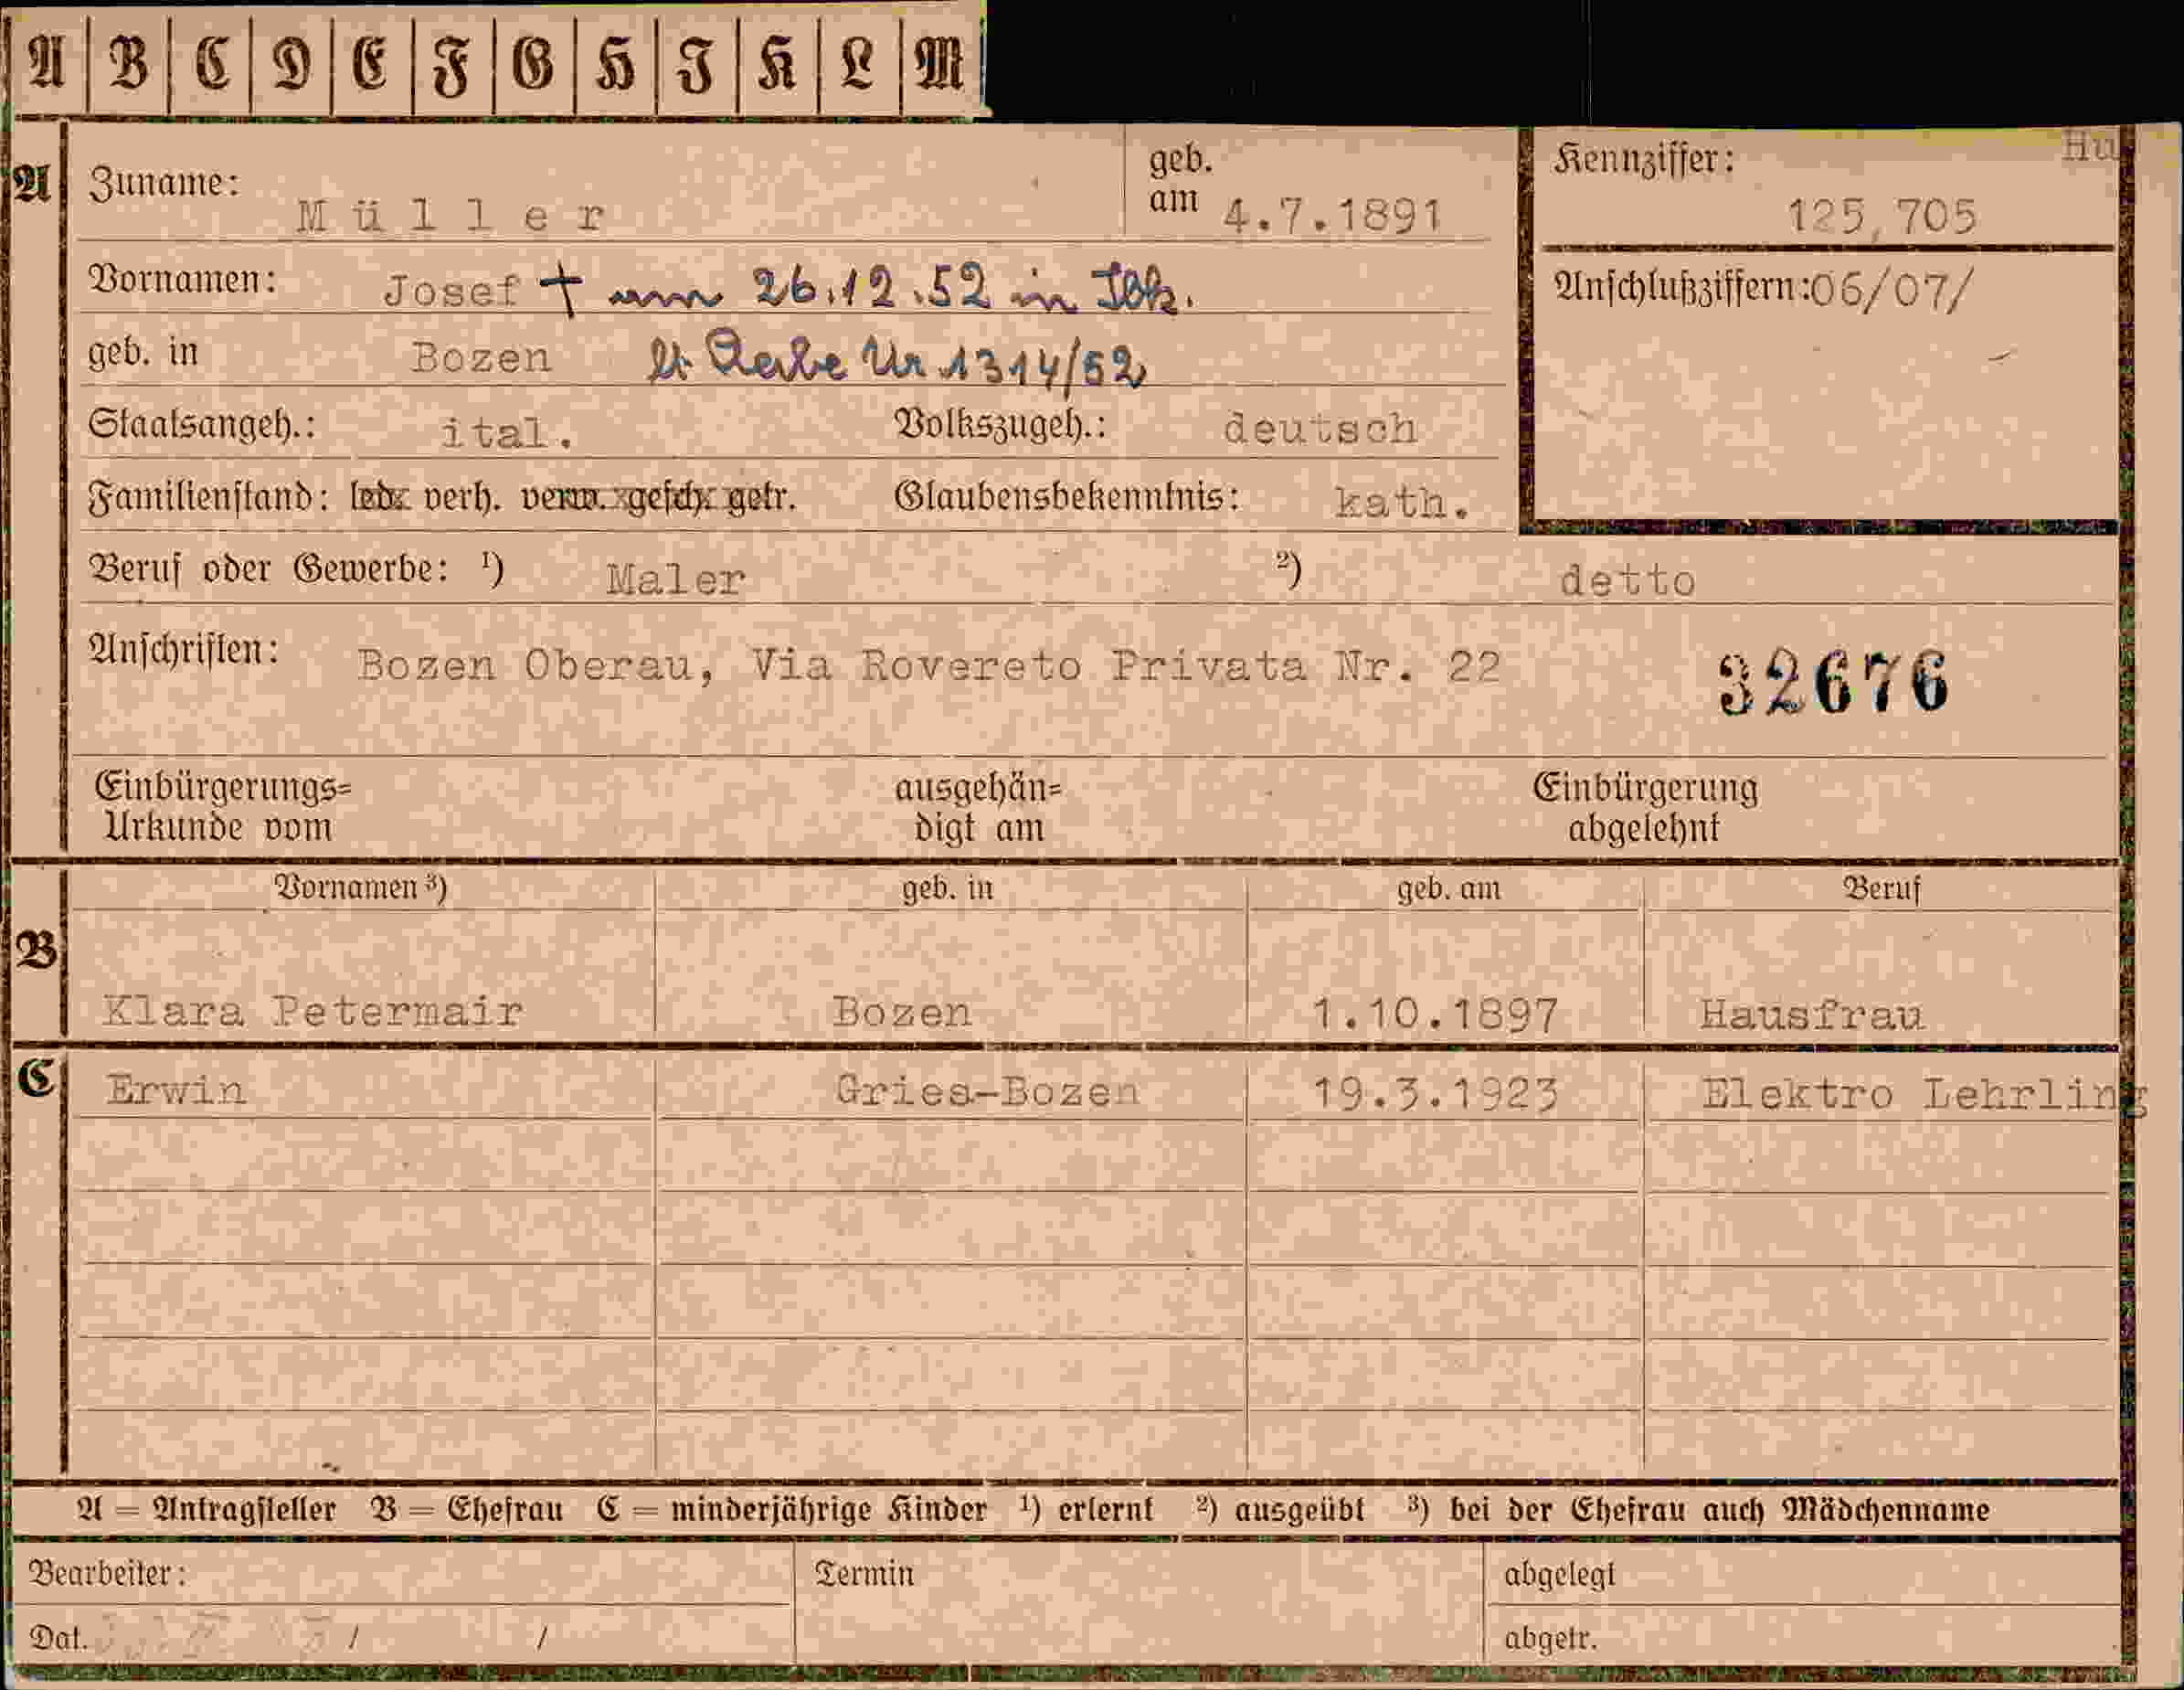 A B C D E F G H I K L M
A Zuname: Müller geb. am 4.7.1891
Kennziffer: Hu
125,705
Vornamen: Josef † am 26.12.52 in Ibk.
Anschlußziffern: 06/07/
geb. in Bozen lt. Sterbe Ur. 1314/52
Staatsangeh.: ital. Volkszugeh.: deutsch
Familienstand: led. verh. verw. gesch. getr. Glaubensbekenntnis: kath.
Beruf oder Gewerbe: ¹) Maler ²) detto
Anschriften: Bozen Oberau, Via Rovereto Privata Nr. 22
32676
Einbürgerungs= Urkunde vom
ausgehän= digt am
Einbürgerung abgelehnt
Vornamen ³) geb. in geb. am Beruf
B
Klara Petermair Bozen 1.10.1897 Hausfrau
C Erwin Gries-Bozen 19.3.1923 Elektro Lehrling
A = Antragsteller B = Ehefrau C = minderjährige Kinder ¹) erlernt ²) ausgeübt ³) bei der Ehefrau auch Mädchenname
Bearbeiter: Termin abgelegt
Dat. / / abgetr.